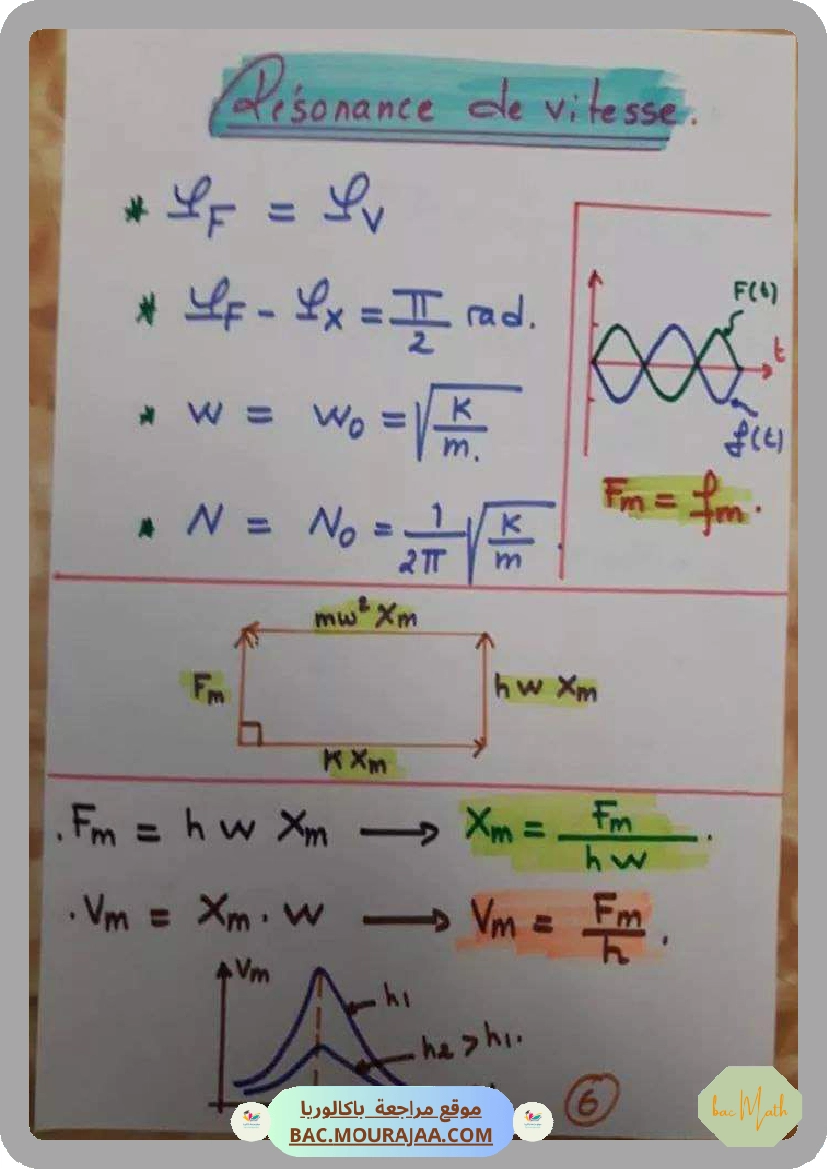 Résonance de vitesse.
* φF = φV
* φF - φX = π/2 rad.
* w = w0 = √(K/m.)
* N = N0 = 1/2π √(K/m).
F(t)
t
f(t)
Fm = fm.
mw² Xm
Fm
h w Xm
K Xm
. Fm = h w Xm → Xm = Fm/hw.
. Vm = Xm. w → Vm = Fm/h.
Vm
h1
h2 > h1.
6
موقع مراجعة باكالوريا
BAC.MOURAJAA.COM
bac Math